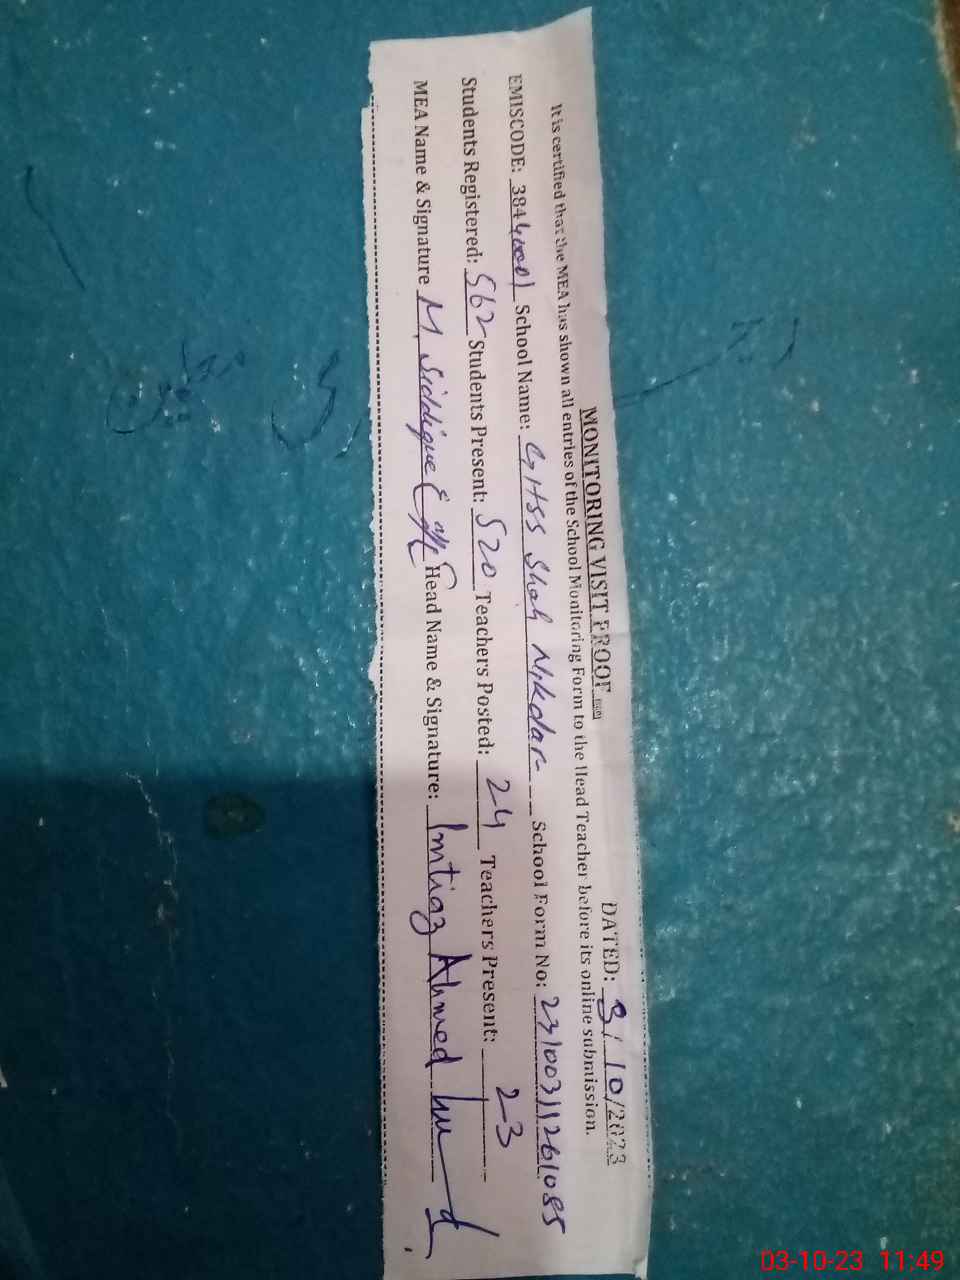 MONITORING VISIT PROOF
DATED: 3/10/2023
It is certified that the MEA has shown all entries of the School Monitoring Form to the Head Teacher before its online submission.
EMISCODE: 38440001 School Name: GHSS Shah Nikdar School Form No: 23100311261085
Students Registered: 562 Students Present: 520 Teachers Posted: 24 Teachers Present: 23
MEA Name & Signature M. Siddique Head Name & Signature: Imtiaz Ahmed
03-10-23 11:49